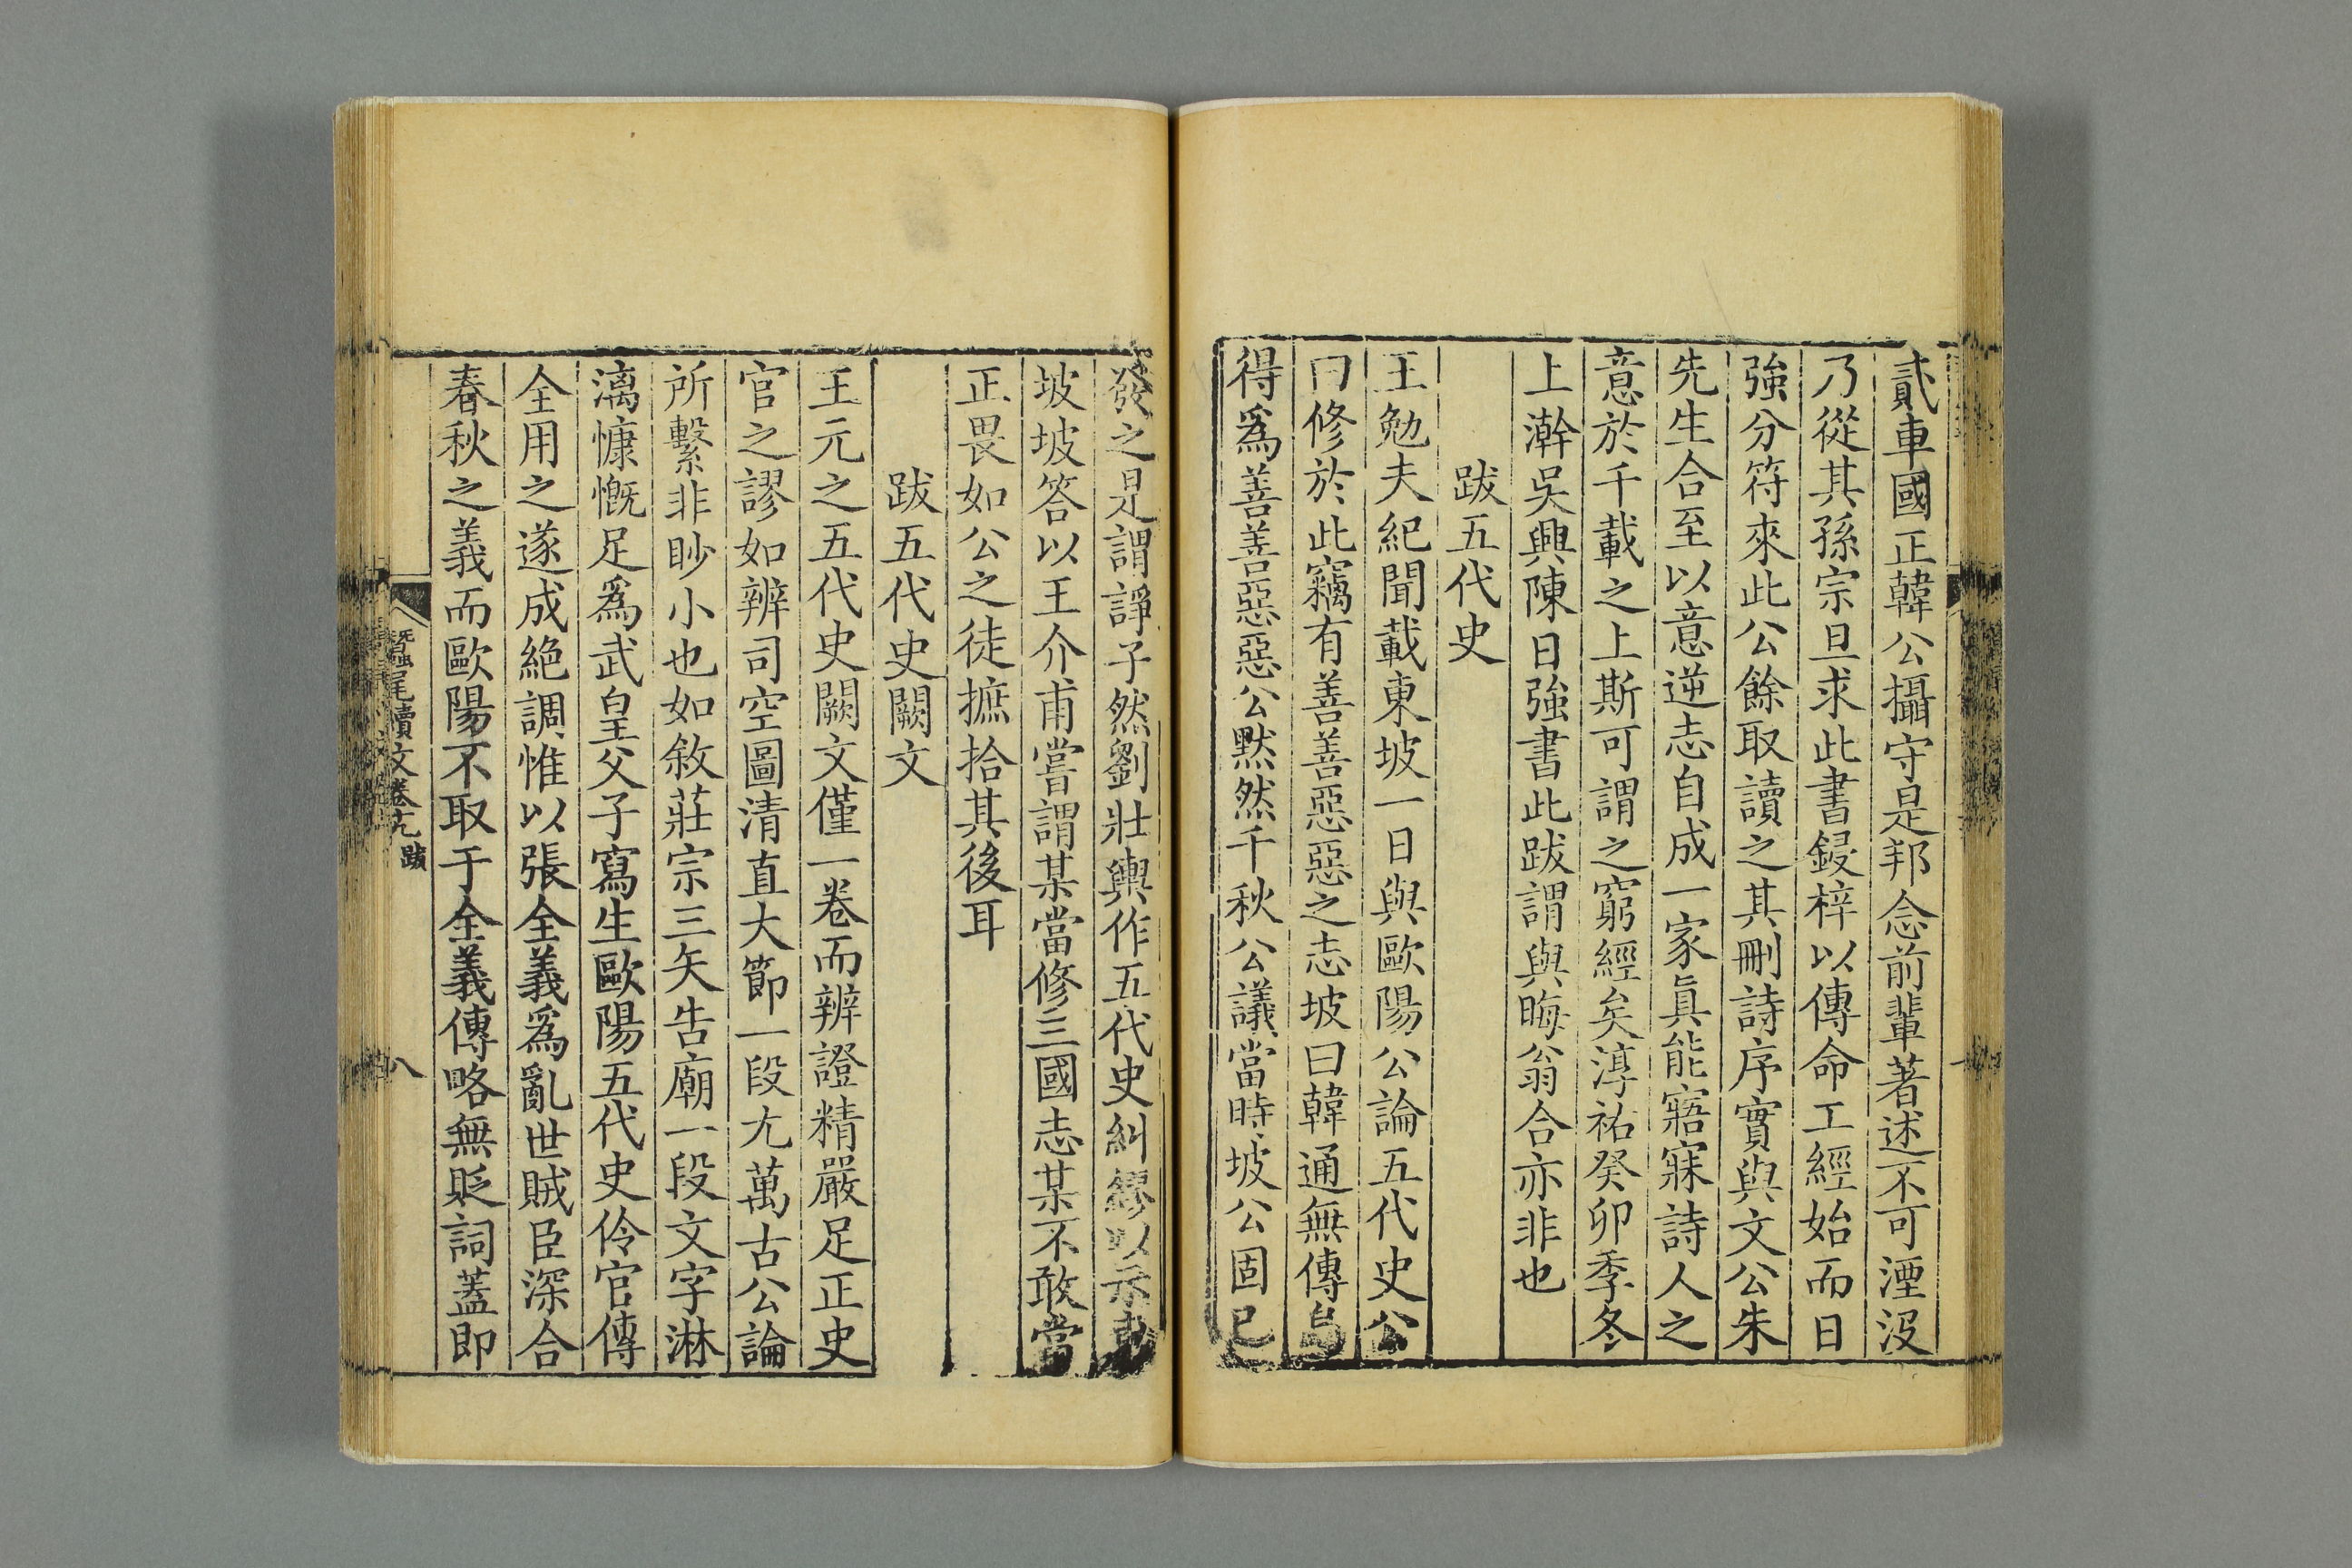 貳車國正韓公攝守是邦念前輩著述不可湮沒
乃從其孫宗旦求此書鋟梓以傳命工經始而日
強分符來此公餘取讀之其刪詩序實與文公朱
先生合至以意逆志自成一家眞能寤寐詩人之
意於千載之上斯可謂之窮經矣淳祐癸卯季冬
上澣吳興陳日強書此跋謂與晦翁合亦非也
跋五代史
王勉夫紀聞載東坡一日與歐陽公論五代史公
曰修於此竊有善善惡惡之志坡曰韓通無傳烏
得爲善善惡惡公默然千秋公議當時坡公固已
發之是謂諍子然劉壯輿作五代史糾繆以示東
坡坡答以王介甫嘗謂某當修三國志某不敢當
正畏如公之徒摭拾其後耳
跋五代史闕文
王元之五代史闕文僅一卷而辨證精嚴足正史
官之謬如辨司空圖清直大節一段尤萬古公論
所繫非眇小也如敘莊宗三矢告廟一段文字淋
漓慷慨足爲武皇父子寫生歐陽五代史伶官傳
全用之遂成絶調惟以張全義爲亂世賊臣深合
春秋之義而歐陽不取于全義傳略無貶詞蓋卽
蠶尾續文卷 跋
八